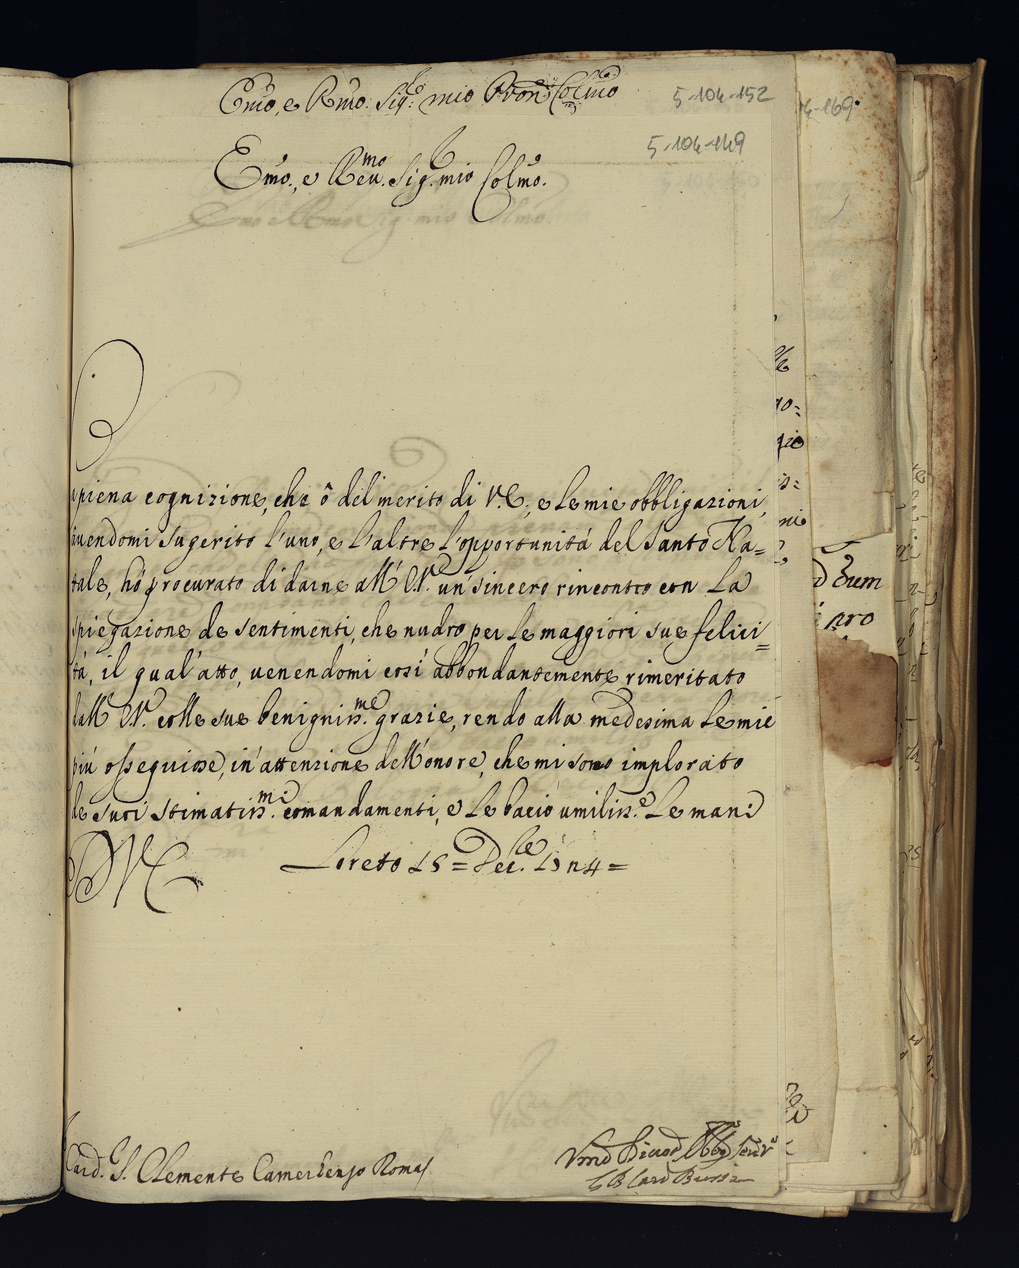 Emo, e Rmo. Sig.r mio Pron Colmo
5-104-152
5-104-149
Emo., e Reu.mo Sig. mio Colmo.
a piena cognizione, che ô del merito di V.E., e le mie obbligazioni,
auendomi sugerito l'uno, e l'altre l'opportunità del Santo Na=
tale, hò procurato di darne all' E.V. un' sincero rincontro con la
spiegazione de sentimenti, che nudro per le maggiori sue felici=
tà, il qual'atto, uenendomi così abbondantemente rimeritato
dall' E.V. colle sue benigniss.me grazie, rendo alla medesima le mie
più osseguiose, in' attenzione dell' onore, che mi sono implorato
de suoi stimatiss.mi comandamenti, e le bacio umiliss.e le mani
D V E
Loreto 15= Dec.bre
Card. S. Clemente Camerlengo Roma
Card Bussi